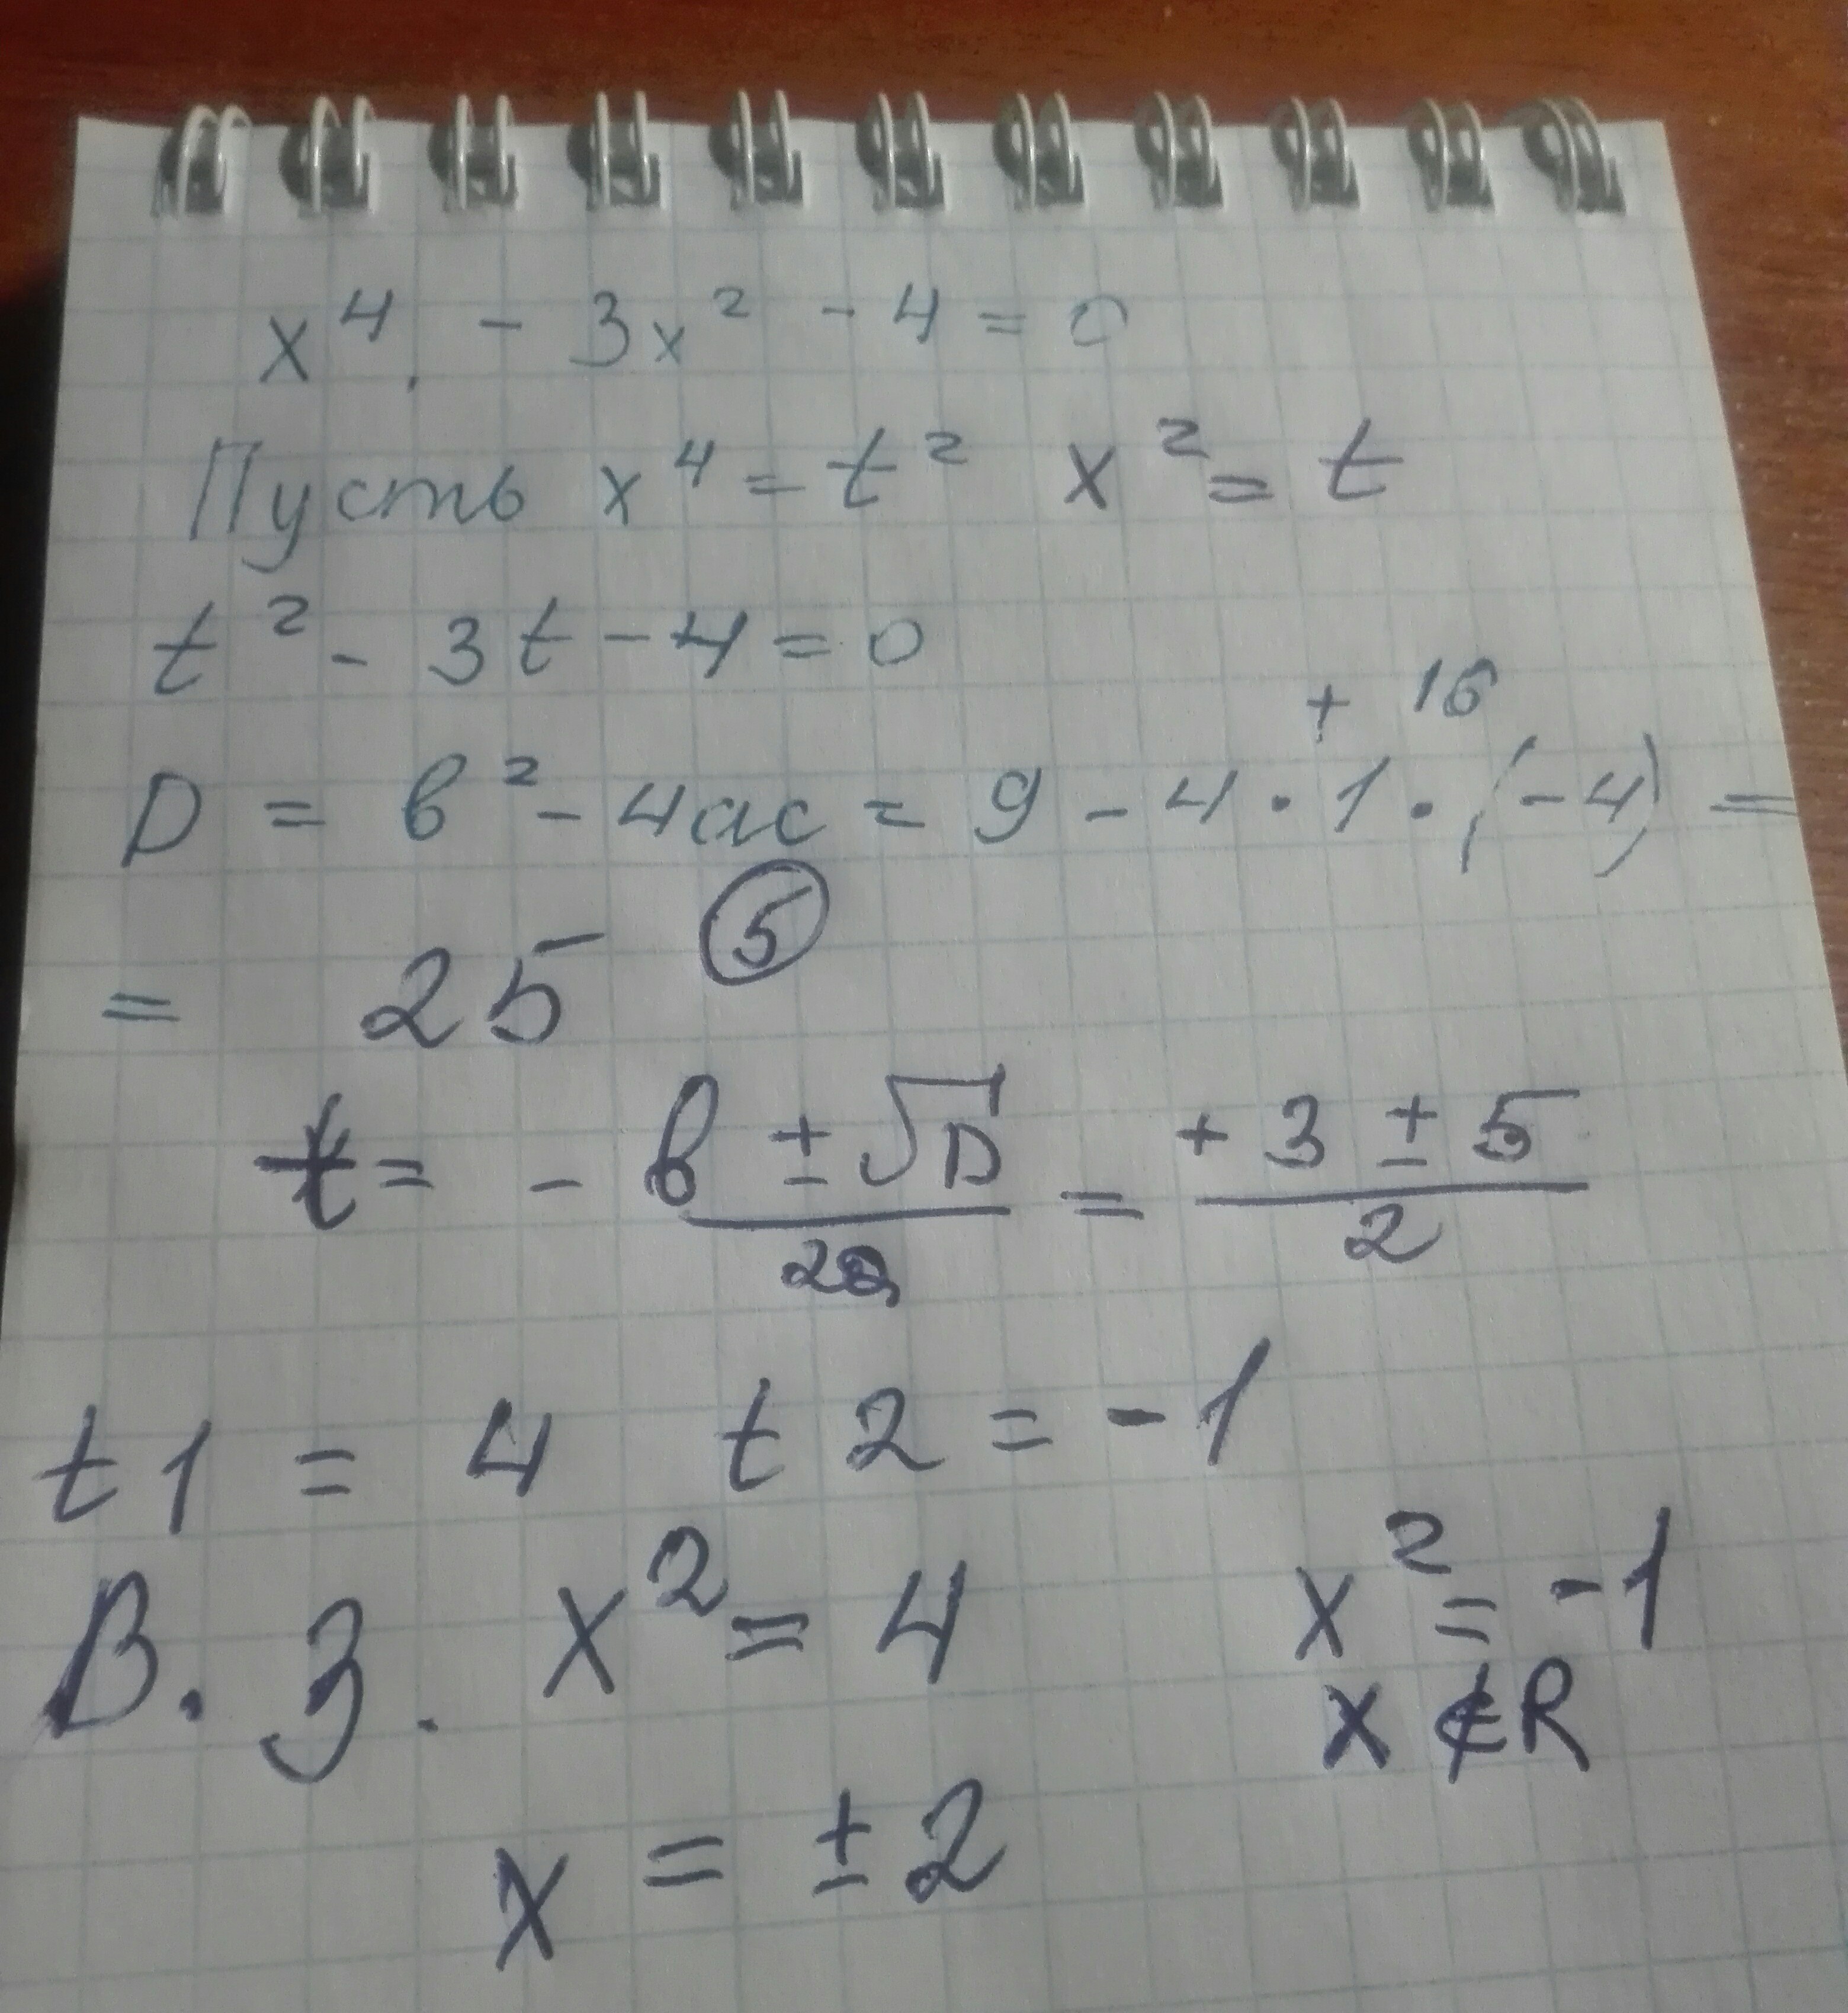 x⁴ - 3x² - 4 = 0
Пусть x⁴ = t² x² = t
t² - 3t - 4 = 0
+ 16
D = в² - 4ac = 9 - 4 · 1 · (-4) =
= 25 5
t = - в ± √D / 2a = + 3 ± 5 / 2
t1 = 4 t2 = -1
В. З. x² = 4 x² = -1
x ∉ R
x = ± 2